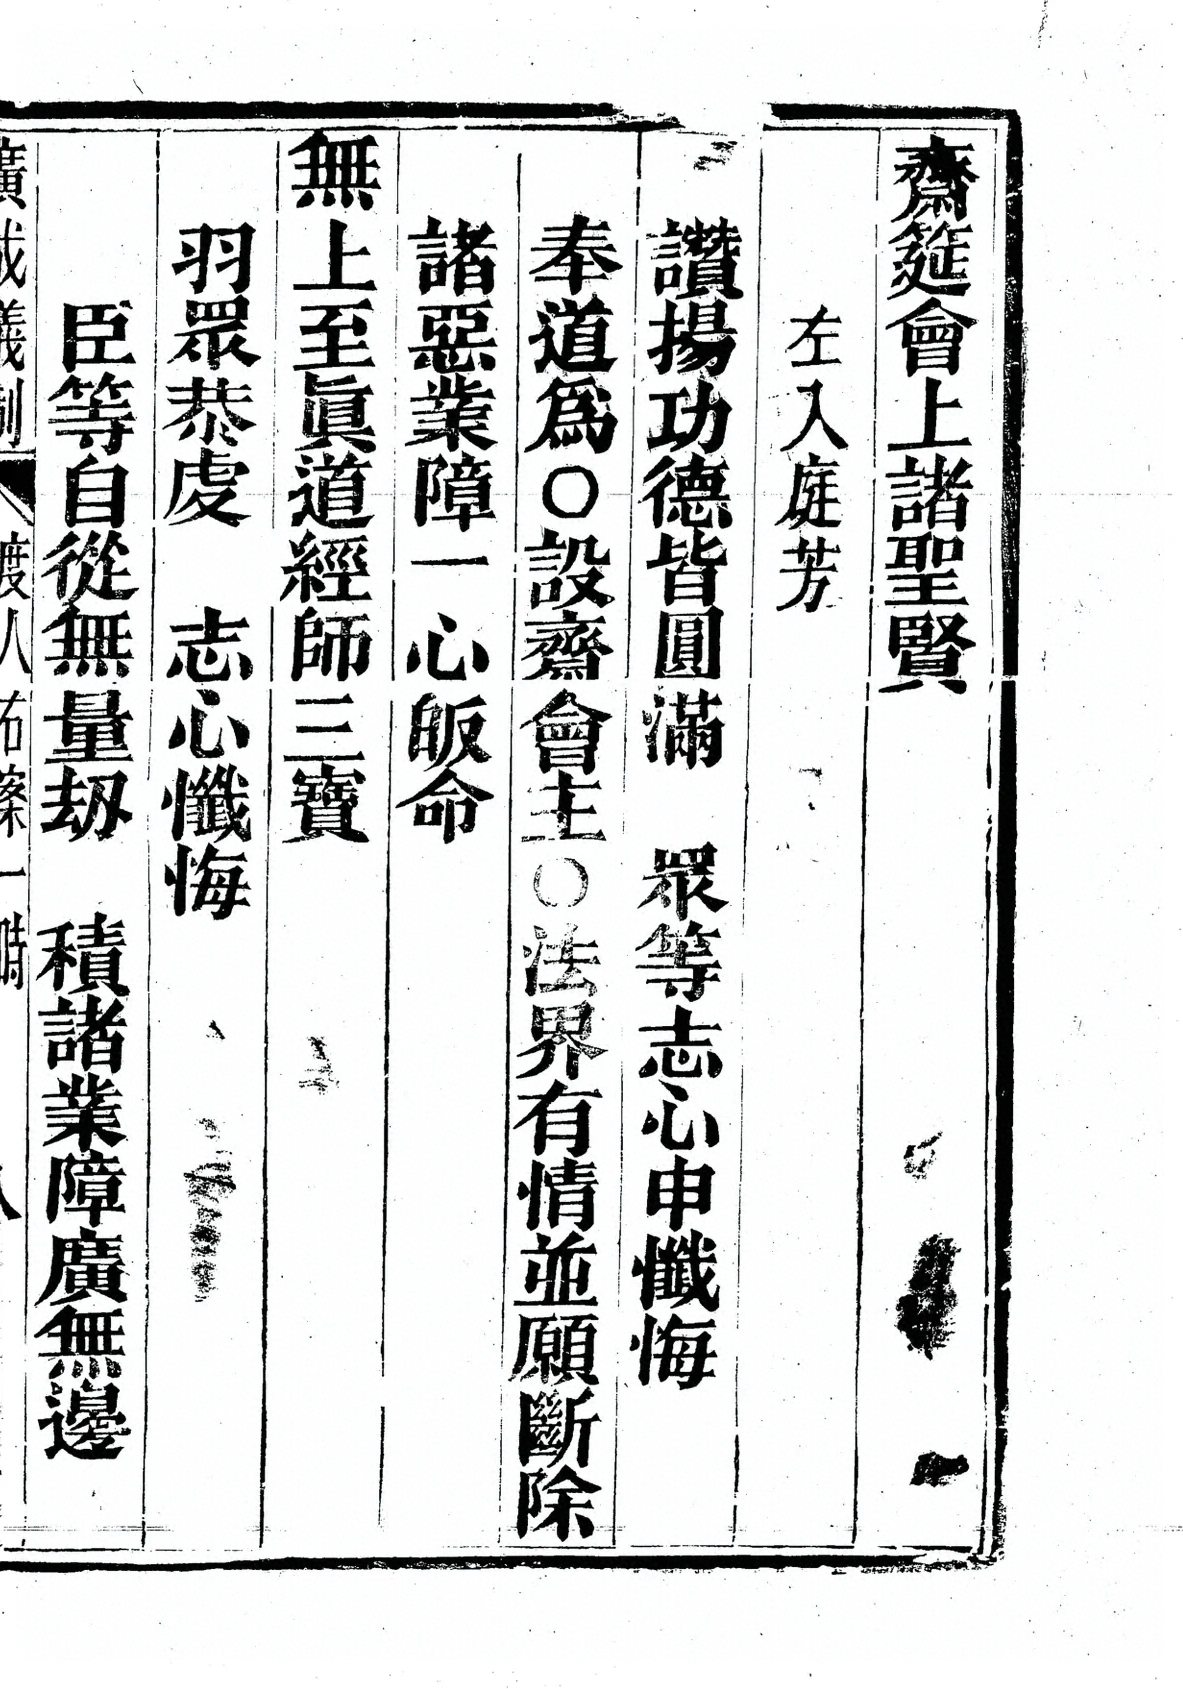 齋筵會上諸聖賢
左入庭芳
讚揚功德皆圓滿　眾等志心申懺悔
奉道為○設齋會主○法界有情並願斷除
諸惡業障一心皈命
無上至眞道經師三寶
羽眾恭虔　志心懺悔
臣等自從無量劫　積諸業障廣無邊
廣成儀制